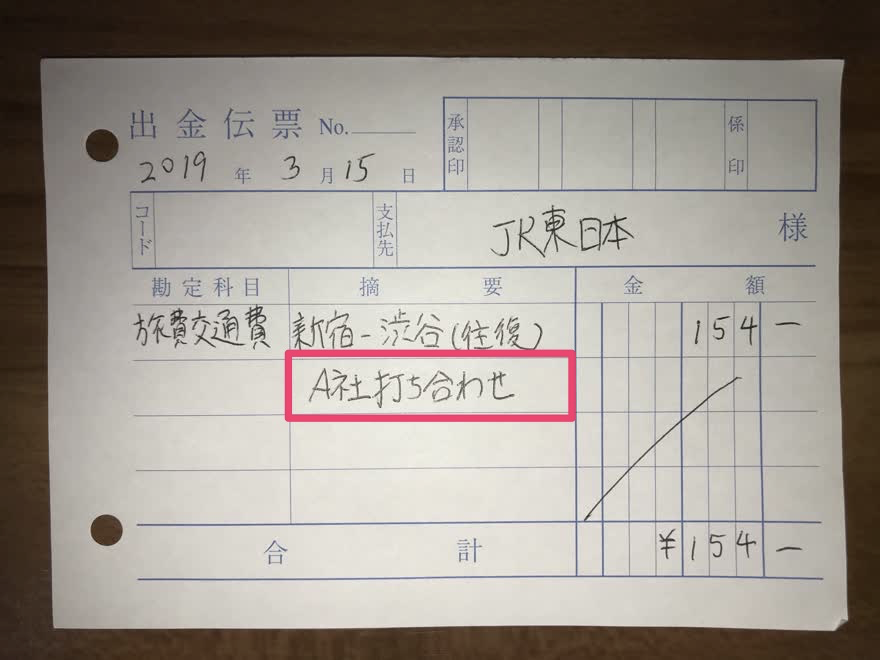 出金伝票 No.
承認印 係印
2019年3月15日
コード 支払先 JR東日本 様
勘定科目 摘要 金額
旅費交通費 新宿-渋谷(往復) 154-
A社打ち合わせ
合計 ¥154-